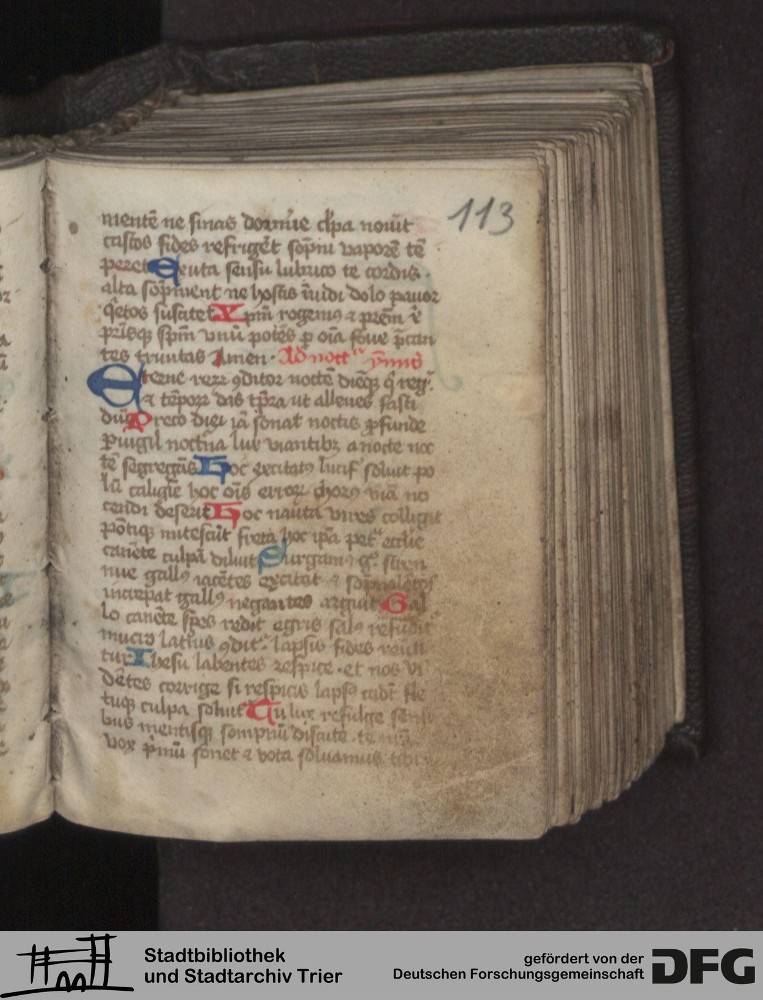 113
mentē ne sinas dormir̄e cl̄pa nouit
castos fides refrigēt sop̄ni vaporē tē
peret Exuta sensu lubrico te cordis
alta sop̄nient ne hostis īuidi dolo pauor
q̄etos suscitet Xp̄m rogem9 ⁊ pr̄em
pr̄isq̄ sp̄m vnū potēs ꝑ oīa foue p̄can
tes trinitas Amen. Ad noct ymnus
Eterne rerꝝ ꝯditor noctē dieq̄ q̄ reḡ
⁊ tēporꝝ das tp̄ra ut alleues fasti
diū Preco diei iā sonat noctis ꝓfunde
ꝑuigil nocturna lux viantibꝫ a nocte noc
tē segregās Hoc excitat9 lucif̄ soluit po
lū caligīe hoc oīs erroꝝ chor9 viā no
cendi deserit Hoc nauta vires colligit
pōtiq̄ mitescūt freta hoc ip̄a petᵃ ecclīe
canēte culpā diluit Surgam9 gͦ stren
nue gall9 iacētes excitat ⁊ sompnolētos
increpat gall9 negantes arguit Gal
lo canēte spes redit egris sal9 refūdit
mucro latr̄is ꝯdit lapsis fides reuū
tur Ihesu labentes respice et nos vi
dētes corrige si respicis laps9 cadūt fle
tuq̄ culpa soluit Tu lux refulge sensi
bus mentisq̄ sompnū discute te nr̄a
vox p̄mū sonet ⁊ vota soluamus tibi
Stadtbibliothek
und Stadtarchiv Trier
gefördert von der
Deutschen Forschungsgemeinschaft
DFG